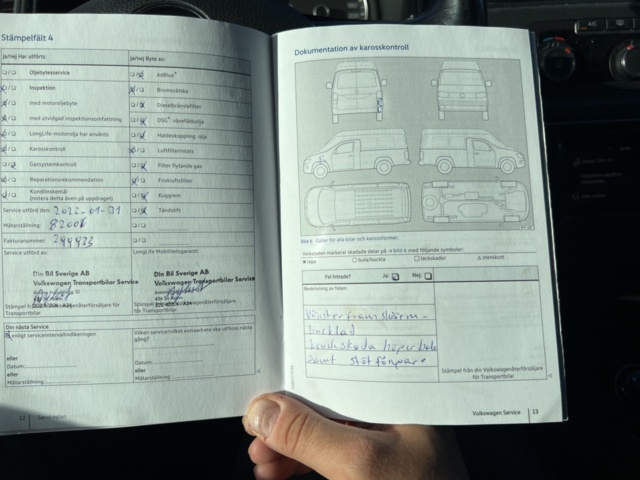 Stämpelfält 4
Ja/nej Har utförts:
Ja/nej Byte av:
Oljebytesservice
AdBlue®
Inspektion
Bromsvätska
med motoroljebyte
Dieselbränslefilter
med utvidgad inspektionsomfattning
DSG®: växellådsolja
LongLife-motorolja har använts
Haldexkoppling: olja
Karosskontroll
Luftfilterinsats
Gassystemkontroll
Filter flytande gas
Reparationsrekommendation
Friskluftsfilter
Kundönskemål
(notera detta även på uppdraget)
Kuggrem
Service utförd den: 2022-01-31
Tändstift
Mätarställning: 82006
Fakturanummer:
Service utförd av:
LongLife Mobilitetsgaranti:
Din Bil Sverige AB
Volkswagen Transportbilar Service
Din Bil Sverige AB
Volkswagen Transportbilar Service
Stämpel från
för
Transportbilar
Stämpel från
för
Transportbilar
Din nästa Service
enligt serviceintervallindikeringen
Vilken service/vilket extraarbete ska utföras nästa
gång?
eller
Datum:
eller
Mätarställning:
eller
Datum:
eller
Mätarställning:
12 Serviceplan
Dokumentation av karosskontroll
Bild 6 Gäller för alla bilar och karossformer.
Verkstaden markerar skadade delar på → bild 6 med följande symboler:
× repa
□ bula/buckla
○ lackskador
△ stenskott
Fel hittade? Ja: Nej:
Beskrivning av felen:
Vänster framskärm
bucklad
lackskada höger bak
samt
Stämpel från din Volkswagenåterförsäljare
för Transportbilar
Volkswagen Service 13
A/C